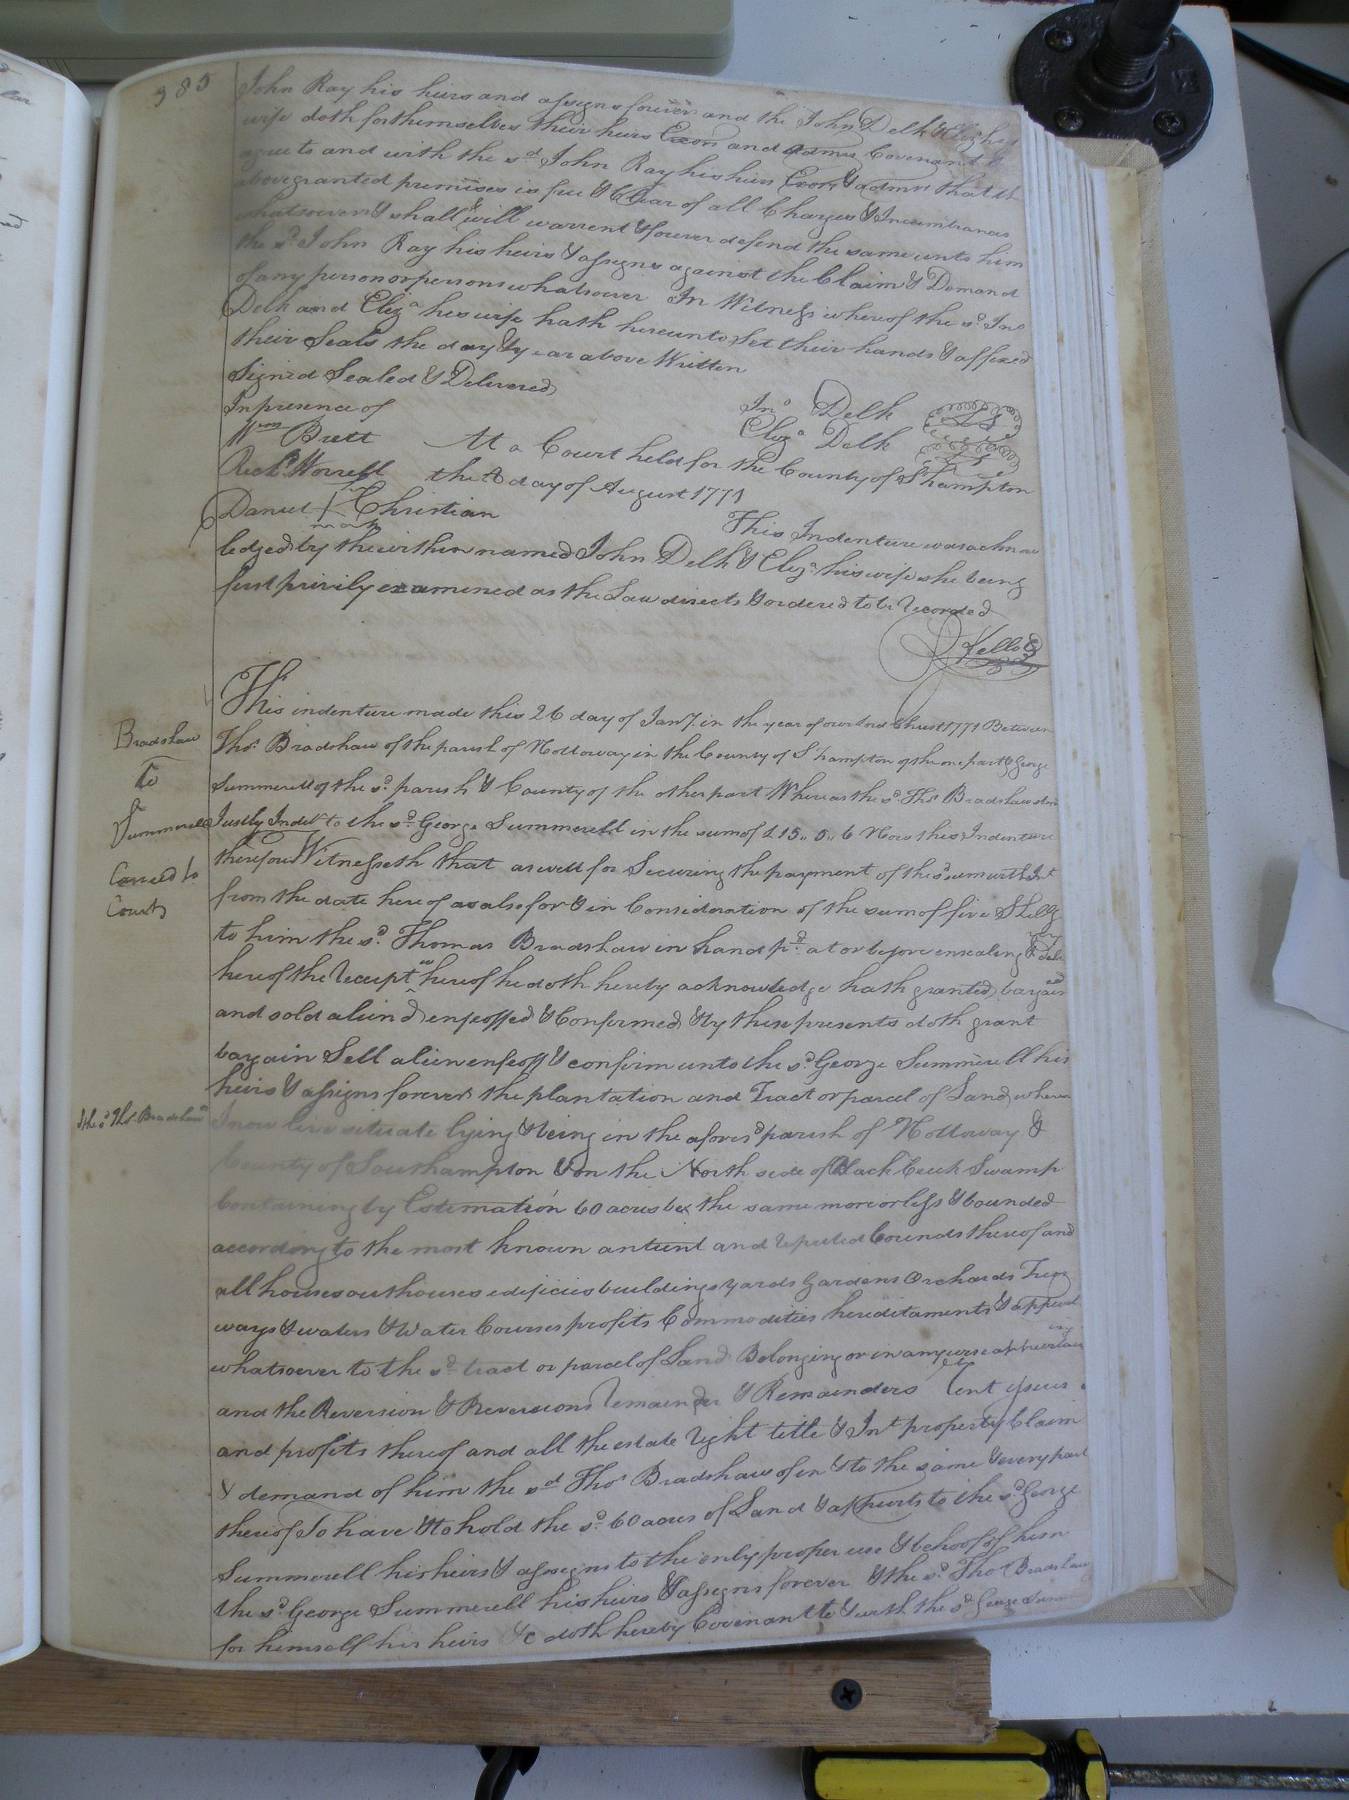 385
John Ray his heirs and assigns forever and the John Delk & Eliz his
wife doth for themselves their heirs Exors and admrs Covenant &
agree to and with the sd John Ray his heirs Exors & admrs that the
above granted premises is free & Clear of all Charges & Incumbrances
whatsoever & shall & will warrent & forever defend the same unto him
the sd John Ray his heirs & assigns against the Claim & Demand
of any person or persons whatsoever In Witness whereof the sd Jno
Delk and Eliza his wife hath hereunto set their hands & affixed
their Seals the day & year above Written
Signed Sealed & Delivered
In presence of
Jno Delk LS
Wm Brett
Eliza Delk LS
Richd Worrell
At a Court held for the County of S'hampton
the day of August 1771
Daniel his Christian
mark
This Indenture was acknow
ledged by the within named John Delk & Eliza his wife she being
first privily examined as the Law directs & ordered to be recorded
Kello
This indenture made this 26 day of Jany in the year of our Lord Christ 1771 Between
Bradshaw
Thos Bradshaw of the parish of Nottoway in the County of S'hampton of the one part & George
To
Summerell of the sd parish & County of the other part Whereas the sd Thos Bradshaw
Summerell
Justly Indebt to the sd George Summerell in the sum of £ 15,, 0,, 6 Now this Indenture
therefore Witnesseth that as well for Securing the payment of the sd sum with Int
Carried to
Court
from the date hereof as also for & in Consideration of the sum of five Shillg
to him the sd Thomas Bradshaw in hand pd at or before ensealing &
hereof the receipt whereof he doth hereby acknowledge hath granted bargaind
and sold aliend enfeoffed & Confirmed & by these presents doth grant
bargain Sell alien enfeoff & confirm unto the sd George Summerell his
heirs & assigns forever the plantation and Tract or parcel of Land whereon
I the sd Thos Bradshaw
I now live situate lying & being in the aforesd parish of Nottoway &
County of Southampton & on the North side of Black Creek Swamp
Containing by Estemation 60 acres be the same more or less & bounded
according to the most known antient and reputed bounds thereof and
all houses outhouses edificies buildings yards Gardens Orchards Trees
ways & waters & Water Courses profits Commodities hereditaments &
whatsoever to the sd tract or parcel of Land Belonging or in any wise appurtain
ing
and the Reversion & Reversions remainder & Remainders rent issues
and profits thereof and all the estate right title & Int property Claim
& demand of him the sd Thos Bradshaw of in & to the same & every part
thereof To have & to hold the sd 60 acres of Land & appurts to the sd George
Summerell his heirs & assigns to the only proper use & behoof of him
the sd George Summerell his heirs & assigns forever & the sd Thos Bradshaw
for himself his heirs &c doth hereby Covenant to & with the sd George